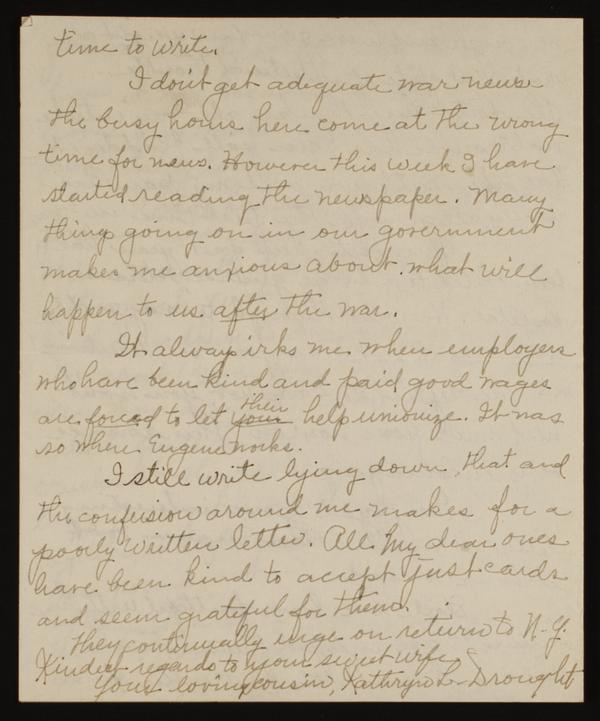 time to write.
I don't get adequate war news
the busy hours here come at the wrong
time for news. However this week I have
started reading the newspaper. Many
things going on in our government
makes me anxious about what will
happen to us after the war.
It always irks me when employers
who have been kind and paid good wages
are forced to let your their help unionize. It was
so where Eugene works.
I still write lying down, that and
the confusion around me makes for a
poorly written letter. All my dear ones
have been kind to accept just cards
and seem grateful for them.
They continually urge on return to N.Y.
Kindest regards to your sweet wife,
Your loving cousin, Kathryn L. Drought